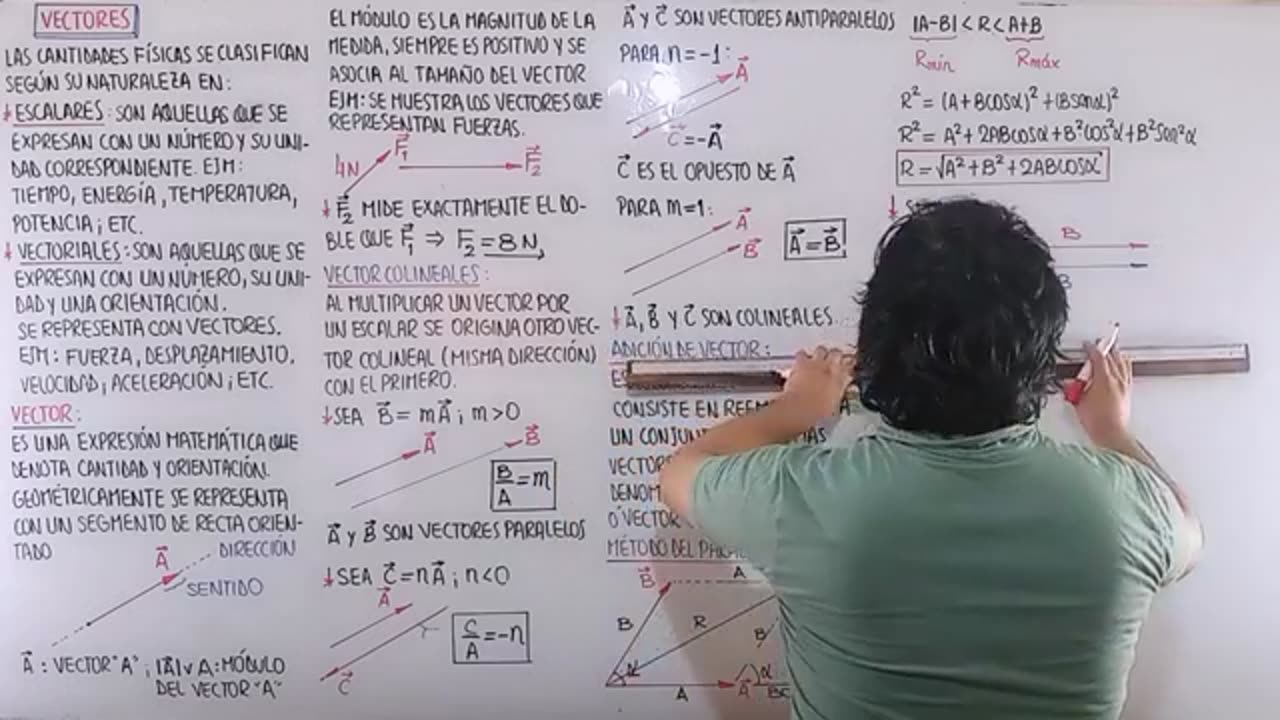 VECTORES
LAS CANTIDADES FÍSICAS SE CLASIFICAN
SEGÚN SU NATURALEZA EN:
ESCALARES: SON AQUELLAS QUE SE
EXPRESAN CON UN NÚMERO Y SU UNI-
DAD CORRESPONDIENTE. EJM:
TIEMPO, ENERGÍA, TEMPERATURA,
POTENCIA; ETC.
VECTORIALES: SON AQUELLAS QUE SE
EXPRESAN CON UN NÚMERO, SU UNI-
DAD Y UNA ORIENTACIÓN.
SE REPRESENTA CON VECTORES.
EJM: FUERZA, DESPLAZAMIENTO.
VELOCIDAD; ACELERACIÓN; ETC.
VECTOR:
ES UNA EXPRESIÓN MATEMÁTICA QUE
DENOTA CANTIDAD Y ORIENTACIÓN.
GEOMÉTRICAMENTE SE REPRESENTA
CON UN SEGMENTO DE RECTA ORIEN-
TADO
A⃗ DIRECCIÓN
SENTIDO
A⃗: VECTOR "A"; |A⃗| v A: MÓDULO
DEL VECTOR "A"
EL MÓDULO ES LA MAGNITUD DE LA
MEDIDA, SIEMPRE ES POSITIVO Y SE
ASOCIA AL TAMAÑO DEL VECTOR
EJM: SE MUESTRA LOS VECTORES QUE
REPRESENTAN FUERZAS.
4N F⃗₁ F⃗₂
F⃗₂ MIDE EXACTAMENTE EL DO-
BLE QUE F⃗₁ ⇒ F₂ = 8N
VECTOR COLINEALES:
AL MULTIPLICAR UN VECTOR POR
UN ESCALAR SE ORIGINA OTRO VEC-
TOR COLINEAL (MISMA DIRECCIÓN)
CON EL PRIMERO.
SEA B⃗ = mA⃗; m>0
A⃗ B⃗
B/A = m
A⃗ y B⃗ SON VECTORES PARALELOS
SEA C⃗ = nA⃗; n<0
A⃗
C/A = -n
C⃗
A⃗ Y C⃗ SON VECTORES ANTIPARALELOS
PARA n = -1:
A⃗
C⃗ = -A⃗
C⃗ ES EL OPUESTO DE A⃗
PARA m = 1:
A⃗
B⃗
A⃗ = B⃗
A⃗, B⃗ Y C⃗ SON COLINEALES.
ADICIÓN DE VECTOR:
CONSISTE EN
UN
MÉTODO DEL
B⃗ A
B R B
α
A A⃗ α
|A-B| < R < A+B
Rmín Rmáx
R² = (A+Bcosα)² + (Bsenα)²
R² = A² + 2ABcosα + B²cos²α + B²sen²α
R = √A² + B² + 2ABcosα
B
B